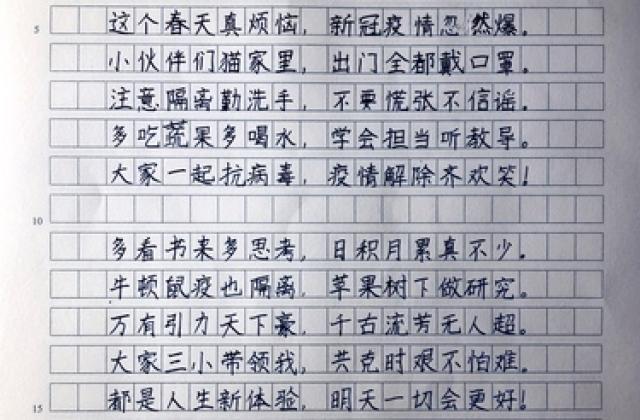 5 这个春天真烦恼，新冠疫情忽然爆。
小伙伴们猫家里，出门全都戴口罩。
注意隔离勤洗手，不要慌张不信谣。
多吃蔬果多喝水，学会担当听教导。
大家一起抗病毒，疫情解除齐欢笑！
10
多看书来多思考，日积月累真不少。
牛顿鼠疫也隔离，苹果树下做研究。
万有引力天下豪，千古流芳无人超。
大家三小带领我，共克时艰不怕难。
15 都是人生新体验，明天一切会更好！